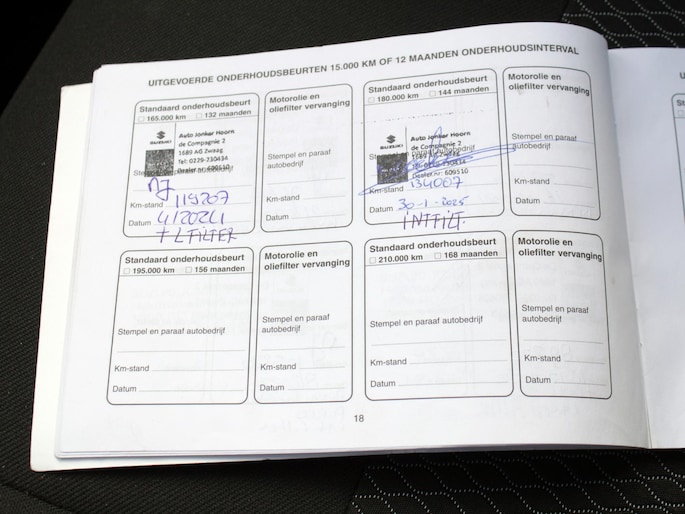 UITGEVOERDE ONDERHOUDSBEURTEN 15.000 KM OF 12 MAANDEN ONDERHOUDSINTERVAL
Standaard onderhoudsbeurt
165.000 km 132 maanden
SUZUKI
Auto Jonker Hoorn
de Compagnie 2
1689 AG Zwaag
Tel: 0229-230434
Dealer nr: 609510
Km-stand 119207
Datum
+ L FILTER
Motorolie en
oliefilter vervanging
Stempel en paraaf
autobedrijf
Km-stand
Datum
Standaard onderhoudsbeurt
180.000 km 144 maanden
SUZUKI
Auto Jonker Hoorn
de Compagnie 2
1689 AG Zwaag
Dealer nr: 609510
Km-stand 134007
Datum 30-1-2025
INTFILT.
Motorolie en
oliefilter vervanging
Stempel en paraaf
autobedrijf
Km-stand
Datum
Standaard onderhoudsbeurt
195.000 km 156 maanden
Stempel en paraaf autobedrijf
Km-stand
Datum
Motorolie en
oliefilter vervanging
Stempel en paraaf
autobedrijf
Km-stand
Datum
Standaard onderhoudsbeurt
210.000 km 168 maanden
Stempel en paraaf autobedrijf
Km-stand
Datum
Motorolie en
oliefilter vervanging
Stempel en paraaf
autobedrijf
Km-stand
Datum
18